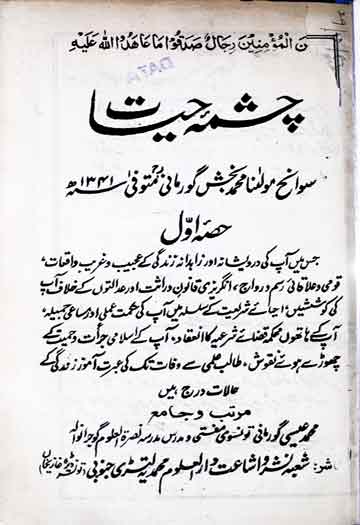 ن المؤمنین رجال صدقوا ما عاهدوا الله علیه
DATA
چشمۂ حیات
سوانح مولٰنا محمد بخش گورمانیؒ متوفی ۱۳۴۱ھ
حصہ اوّل
جس میں آپ کی درویشانہ اور زاہدانہ زندگی کے عجیب و غریب واقعات،
قومی و علاقائی رسم و رواج، انگریزی قانونِ وراثت اور عدالتوں کے خلاف آپ
کی کوششیں، احیائے شریعت کے سلسلہ میں آپ کی حکمت عملی اور مساعی جمیلہ،
آپ کے ہاتھوں محکمہ قضائے شرعیہ کا انعقاد، آپ کے اسلامی جرأت و حمیت کے
چھوڑے ہوئے نقوش، طالب علمی سے وفات تک کی عبرت آموز زندگی کے
حالات درج ہیں
مرتب و جامع
محمد عیسیٰ گورمانی تونسوی مفتی و مدرس مدرسہ نصرۃ العلوم گوجرانوالہ
شر: شعبہ نشر و اشاعت دار العلوم محمدیہ لتڑی جنوبی